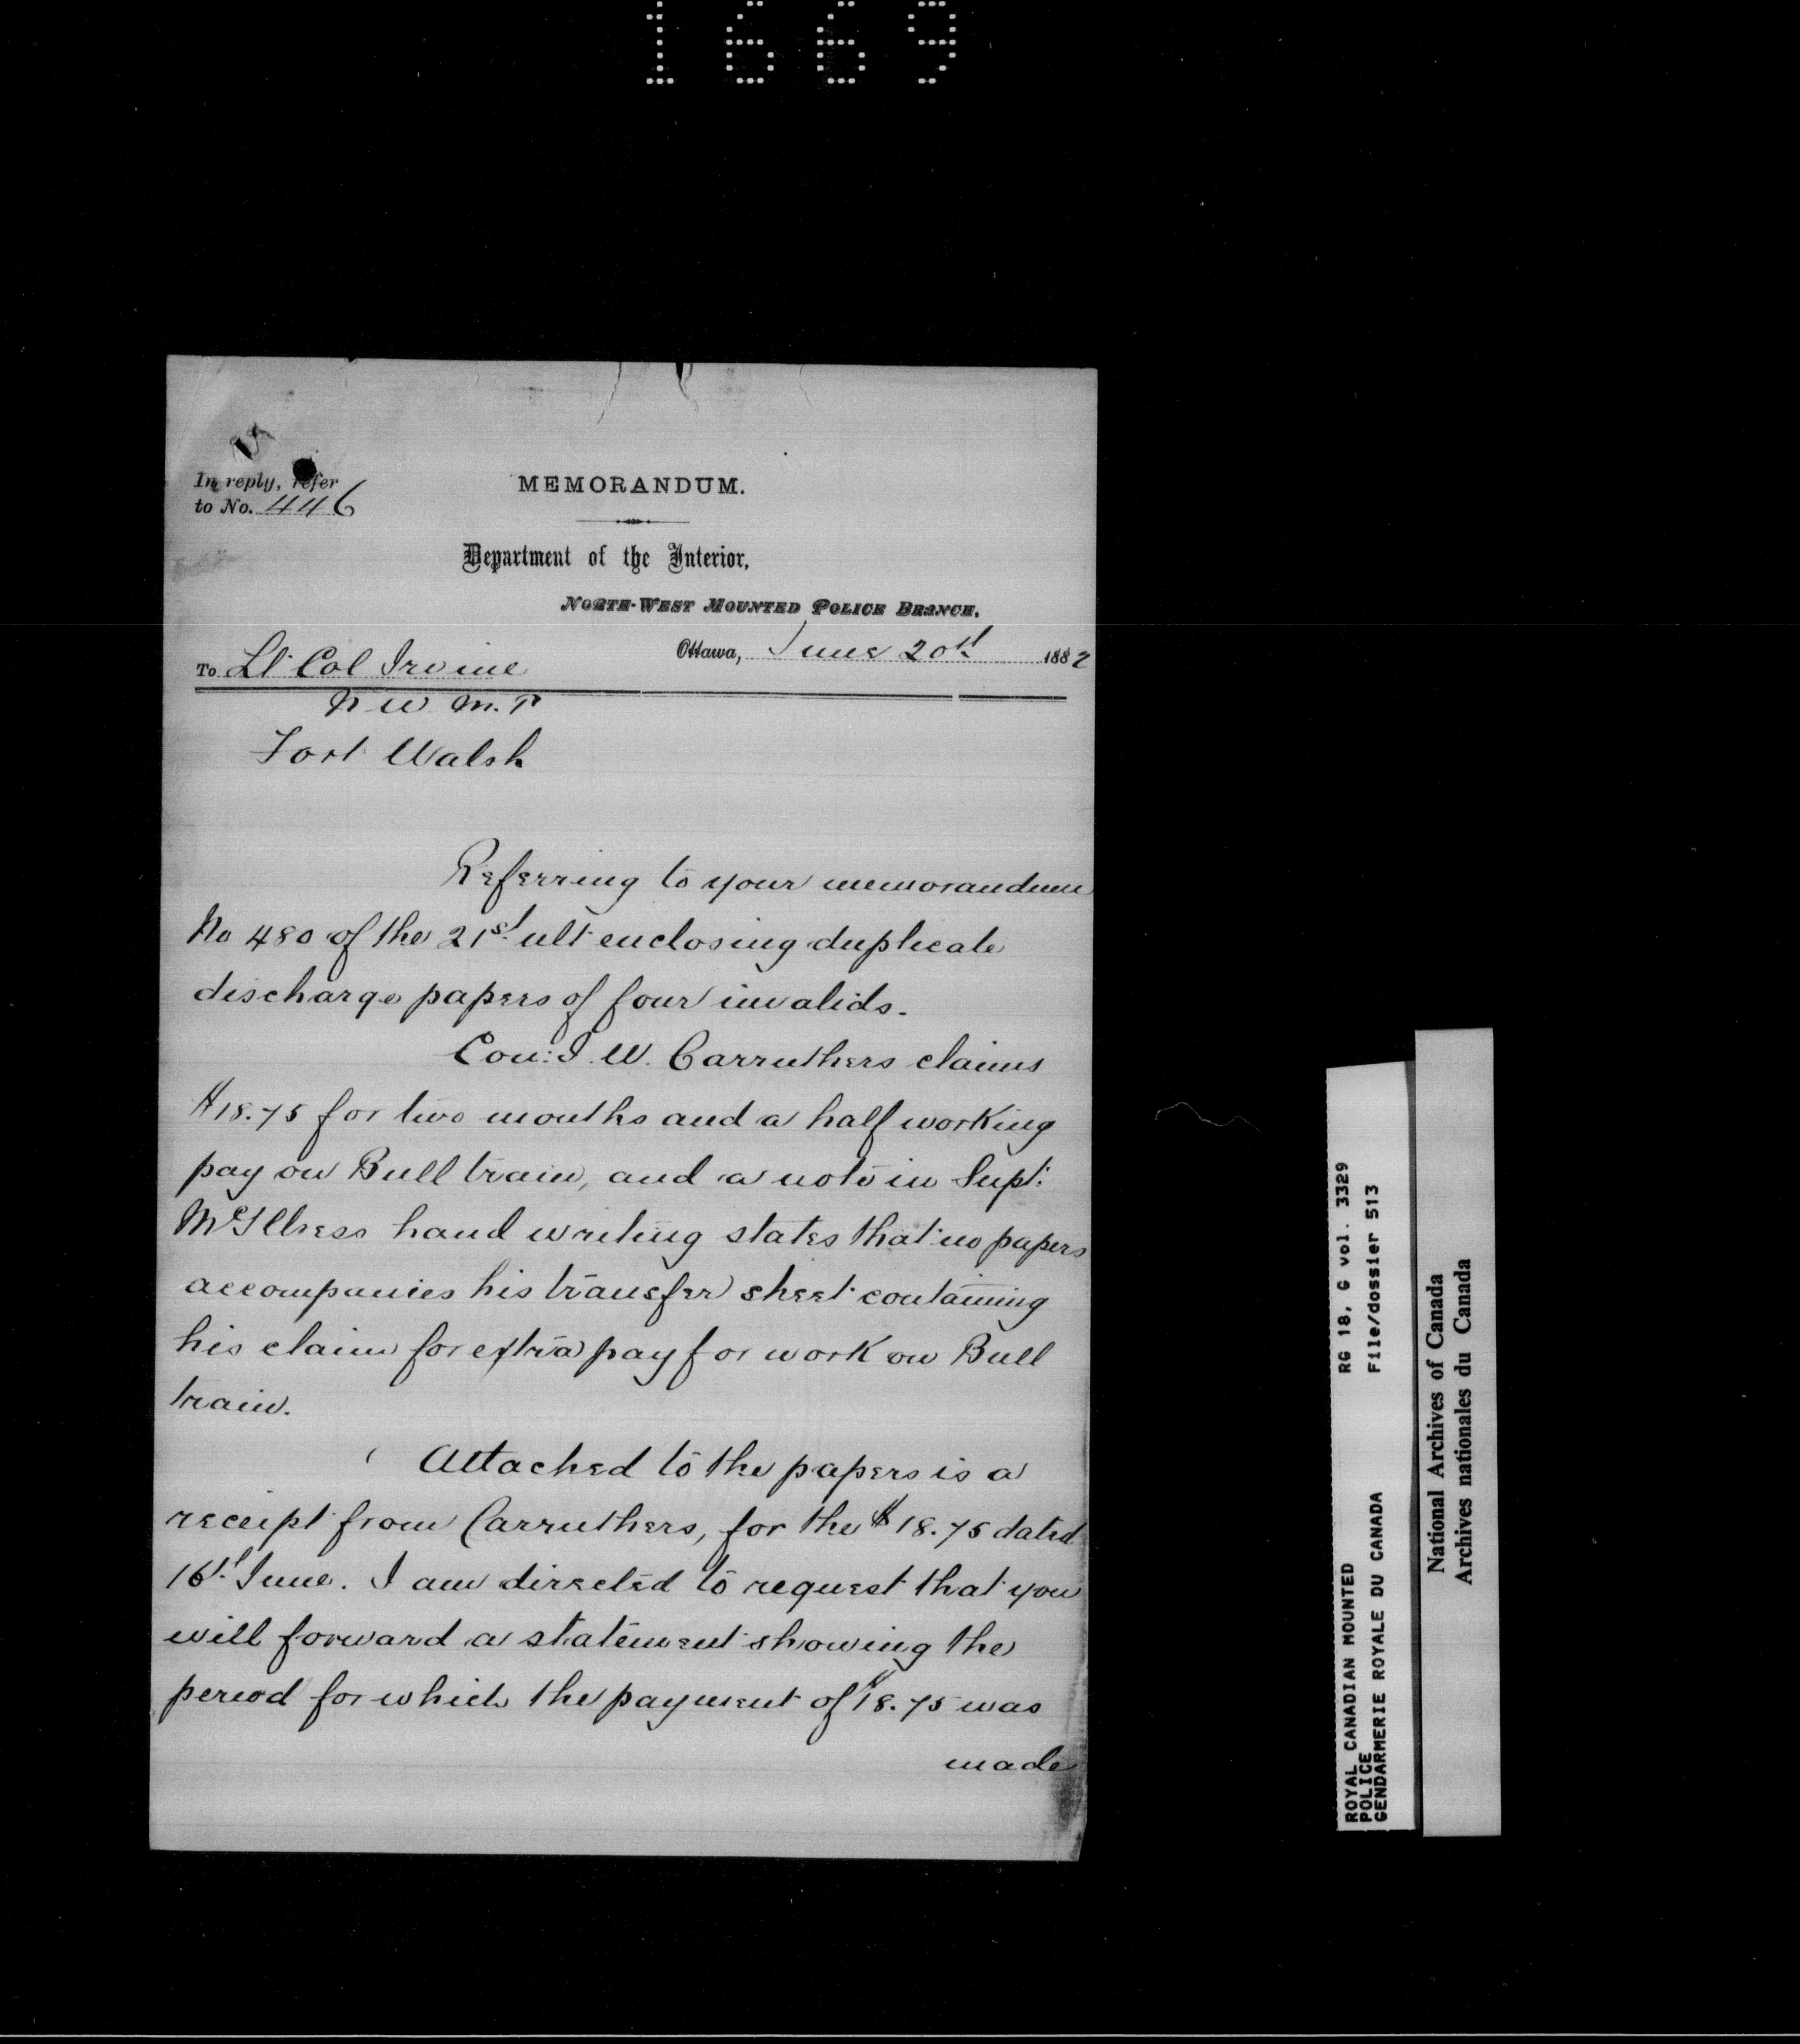 1669
In reply, refer
to No. 446
MEMORANDUM.
Department of the Interior,
NORTH-WEST MOUNTED POLICE BRANCH.
Ottawa, June 20th 1882
To Lt Col Irvine
N W M. P
Fort Walsh
Referring to your memorandum
No 480 of the 21st ult enclosing duplicate
discharge papers of four invalids.
Con: J. W. Carruthers claims
$18.75 for two months and a half working
pay on Bull train, and a note in Supt:
McIllrees hand writing states that no papers
accompanies his transfer sheet containing
his claim for extra pay for work on Bull
train.
Attached to the papers is a
receipt from Carruthers, for the $18.75 dated
June. I am directed to request that you
will forward a statement showing the
period for which the payment of $18.75 was
made
RG 18, G vol. 3329
File/dossier 513
ROYAL CANADIAN MOUNTED
POLICE
GENDARMERIE ROYALE DU CANADA
National Archives of Canada
Archives nationales du Canada